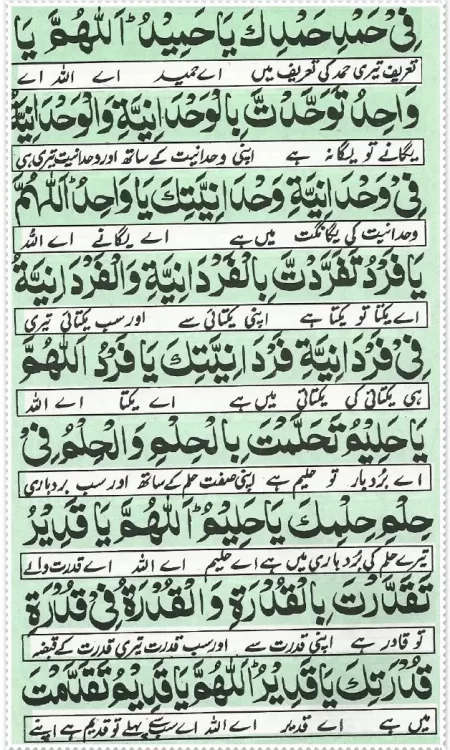 فِیْ حَمْدِ حَمْدِكَ يَا حَمِيْدُ اَللّٰهُمَّ يَا
تعریف تیری حمد کی تعریف میں اے حمید اے اللہ اے
وَاحِدُ تَوَحَّدْتَّ بِالْوَحْدَانِيَّةِ وَالْوَحْدَانِيَّةُ
یگانے تو یگانہ ہے اپنی وحدانیت کے ساتھ اور وحدانیت تیری ہی
فِیْ وَحْدَانِيَّةِ وَحْدَانِيَّتِكَ يَا وَاحِدُ اَللّٰهُمَّ
وحدانیت کی یگانگت میں ہے اے یگانے اے اللہ
يَا فَرْدُ تَفَرَّدْتَّ بِالْفَرْدَانِيَّةِ وَالْفَرْدَانِيَّةُ
اے یکتا تو یکتا ہے اپنی یکتائی سے اور سب یکتائی تیری
فِیْ فَرْدَانِيَّةِ فَرْدَانِيَّتِكَ يَا فَرْدُ اَللّٰهُمَّ
ہی یکتائی کی یکتائی میں ہے اے یکتا اے اللہ
يَا حَلِيْمُ تَحَلَّمْتَ بِالْحِلْمِ وَالْحِلْمُ فِیْ
اے بُردبار تو حلیم ہے اپنی صفت حلم کے ساتھ اور سب بردباری
حِلْمِ حِلْمِكَ يَا حَلِيْمُ اَللّٰهُمَّ يَا قَدِيْرُ
تیرے حلم کی بُردباری میں ہے اے حلیم اے اللہ اے قدرت والے
تَقَدَّرْتَ بِالْقُدْرَةِ وَالْقُدْرَةُ فِیْ قُدْرَةِ
تو قادر ہے اپنی قدرت سے اور سب قدرت تیری قدرت کے قبضہ
قُدْرَتِكَ يَا قَدِيْرُ اَللّٰهُمَّ يَا قَدِيْمُ تَقَدَّمْتَ
میں ہے اے قدیر اے اللہ اے سب سے پہلے تو قدیم ہے اپنے